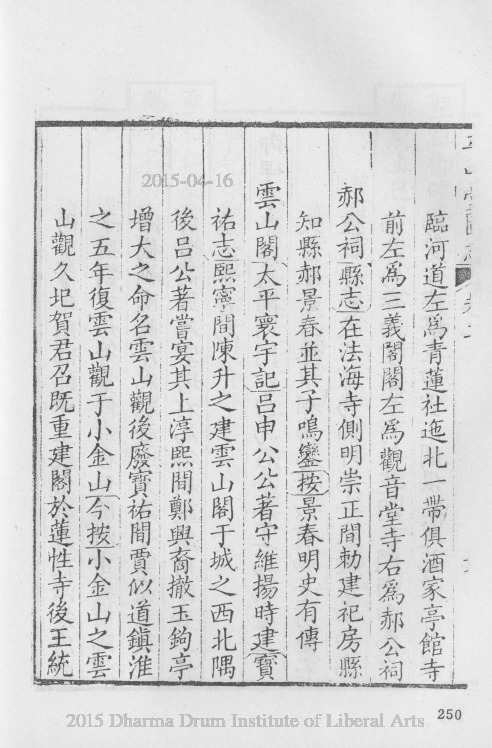 臨河道左爲青蓮社迤北一帶俱酒家亭館寺
前左爲三義閣閣左爲觀音堂寺右爲郝公祠
郝公祠縣志在法海寺側明崇正間勅建祀房縣
知縣郝景春並其子鳴鑾按景春明史有傳
雲山閣太平寰宇記呂申公公著守維揚時建寶
祐志熙寧間陳升之建雲山閣于城之西北隅
後呂公著嘗宴其上淳熙間鄭興裔撤玉鉤亭
增大之命名雲山觀後廢寶祐間賈似道鎮淮
之五年復雲山觀于小金山今按小金山之雲
山觀久圯賀君召既重建閣於蓮性寺後王統
250
2015-04-16
2015 Dharma Drum Institute of Liberal Arts